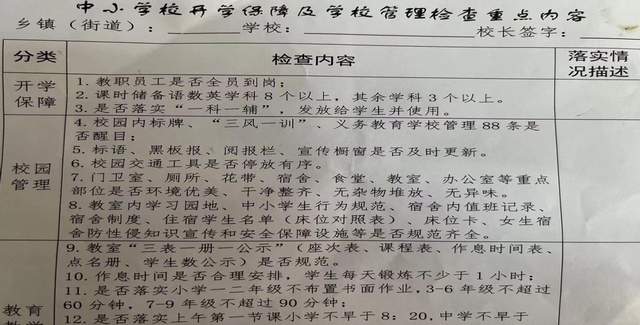 中小学校开学保障及学校管理检查重点内容
乡镇（街道）：________学校：________校长签字：________
分类 检查内容 落实情况描述
开学保障
1. 教职员工是否全员到岗；
2. 课时储备语数英学科 8 个以上，其余学科 3 个以上。
3. 是否落实“一科一辅”，发放给学生并使用。
校园管理
4. 校园内标牌、“三风一训”、义务教育学校管理 88 条是
否醒目；
5. 标语、黑板报、阅报栏、宣传橱窗是否及时更新。
6. 校园交通工具是否停放有序。
7. 门卫室、厕所、花带、宿舍、食堂、教室、办公室等重点
部位是否环境优美、干净整齐、无杂物堆放、无异味。
8. 教室内学习园地、中小学生行为规范、宿舍内值班记录、
宿舍制度、住宿学生名单（床位对照表）、床位卡、女生宿
舍防性侵知识宣传和安全保障设施等是否规范齐全。
教育
9. 教室“三表一册一公示”（座次表、课程表、作息时间表、
点名册、学生数公示）是否规范。
10. 作息时间是否合理安排，学生每天锻炼不少于 1 小时；
11. 是否落实小学一二年级不布置书面作业，3-6 年级不超过
60 分钟，7-9 年级不超过 90 分钟；
12. 是否落实上午第一节课小学不早于 8：20，中学不早于